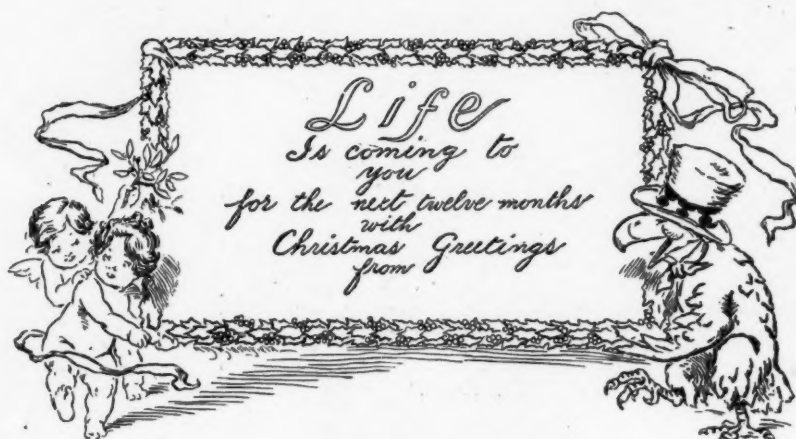 Life
Is coming to
you
for the next twelve months
with
Christmas Greetings
from